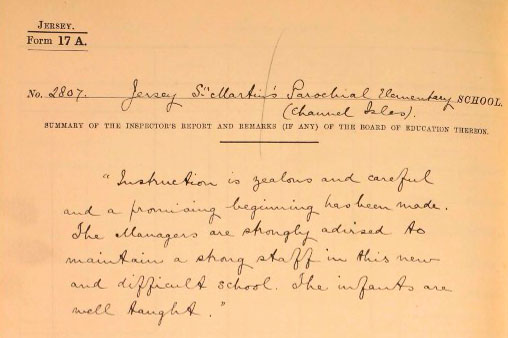 JERSEY.
Form 17 A.
No. 2807. Jersey St Martin's Parochial Elementary SCHOOL.
(Channel Isles).
SUMMARY OF THE INSPECTOR'S REPORT AND REMARKS (IF ANY) OF THE BOARD OF EDUCATION THEREON.
"Instruction is zealous and careful
and a promising beginning has been made.
The Managers are strongly advised to
maintain a strong staff in this new
and difficult school. The infants are
well taught."